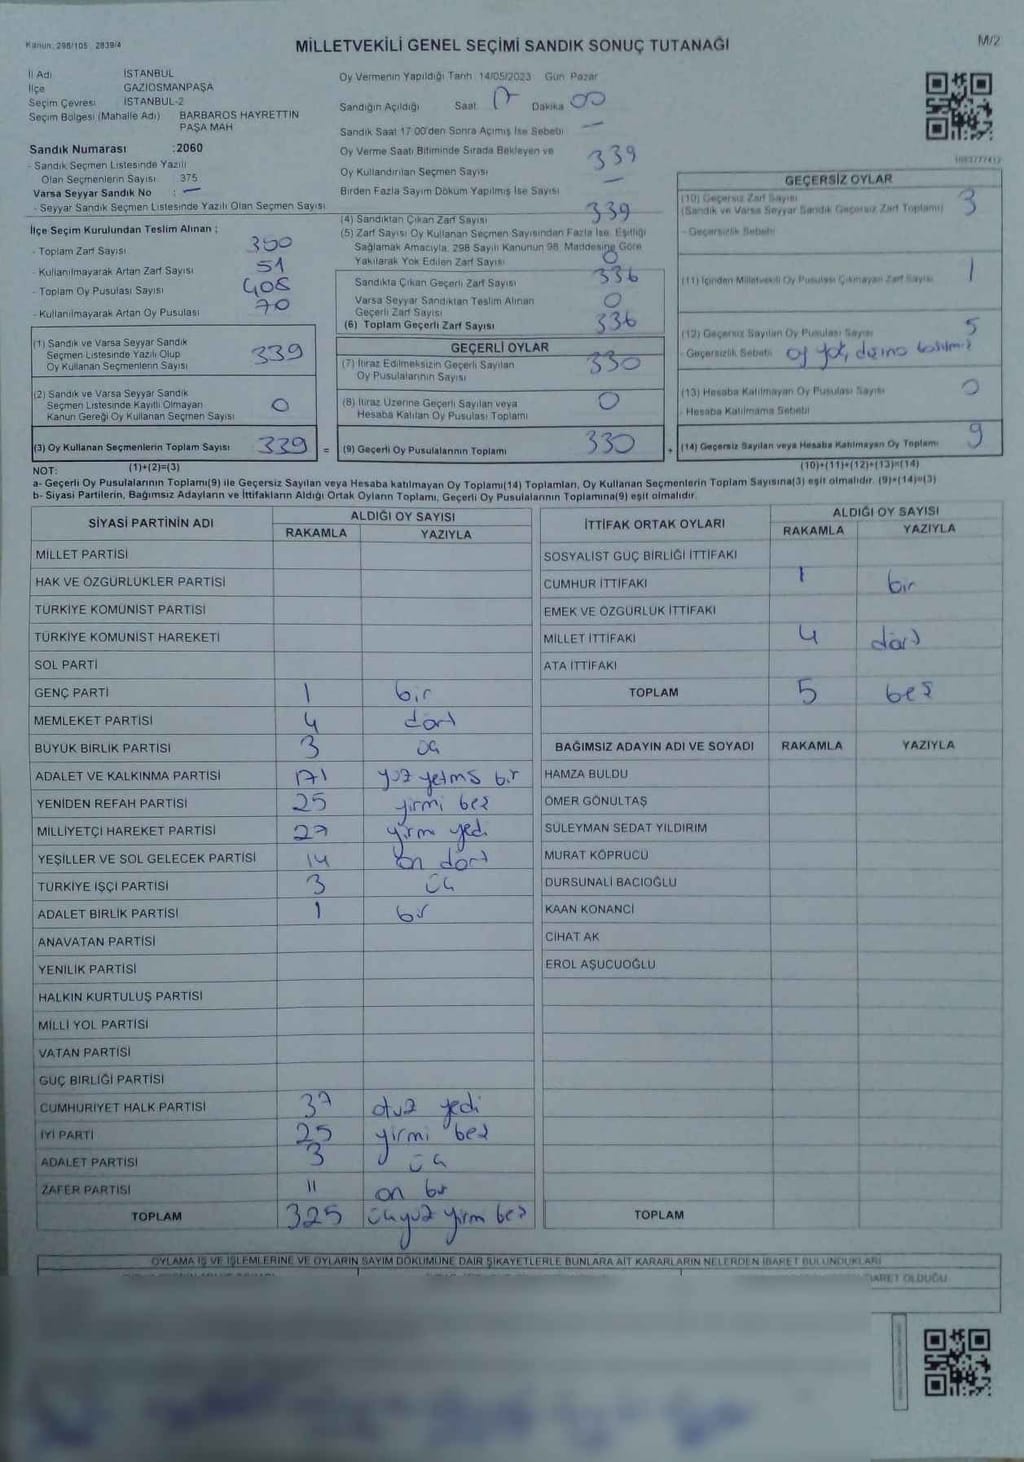 Kanun: 298/105 2839/4
MİLLETVEKİLİ GENEL SEÇİMİ SANDIK SONUÇ TUTANAĞI
M/2
İl Adı İSTANBUL
İlçe GAZİOSMANPAŞA
Seçim Çevresi İSTANBUL-2
Seçim Bölgesi (Mahalle Adı) BARBAROS HAYRETTİN
PAŞA MAH
Sandık Numarası :2060
- Sandık Seçmen Listesinde Yazılı
Olan Seçmenlerin Sayısı 375
Varsa Seyyar Sandık No : —
- Seyyar Sandık Seçmen Listesinde Yazılı Olan Seçmen Sayısı
İlçe Seçim Kurulundan Teslim Alınan ;
- Toplam Zarf Sayısı 390
- Kullanılmayarak Artan Zarf Sayısı 51
- Toplam Oy Pusulası Sayısı 408
- Kullanılmayarak Artan Oy Pusulası 70
(1) Sandık ve Varsa Seyyar Sandık
Seçmen Listesinde Yazılı Olup
Oy Kullanan Seçmenlerin Sayısı 339
(2) Sandık ve Varsa Seyyar Sandık
Seçmen Listesinde Kayıtlı Olmayan
Kanun Gereği Oy Kullanan Seçmen Sayısı 0
(3) Oy Kullanan Seçmenlerin Toplam Sayısı 339 =
Oy Vermenin Yapıldığı Tarih 14/05/2023 Gün Pazar
Sandığın Açıldığı Saat 17 Dakika 00
Sandık Saat 17 00'den Sonra Açılmış İse Sebebi —
Oy Verme Saati Bitiminde Sırada Bekleyen ve
Oy Kullandırılan Seçmen Sayısı 339
Birden Fazla Sayım Döküm Yapılmış İse Sayısı —
(4) Sandıktan Çıkan Zarf Sayısı 339
(5) Zarf Sayısı Oy Kullanan Seçmen Sayısından Fazla İse, Eşitliği
Sağlamak Amacıyla, 298 Sayılı Kanunun 98. Maddesine Göre
Yakılarak Yok Edilen Zarf Sayısı 0
Sandıkta Çıkan Geçerli Zarf Sayısı 336
Varsa Seyyar Sandıktan Teslim Alınan
Geçerli Zarf Sayısı 0
(6) Toplam Geçerli Zarf Sayısı 336
GEÇERLİ OYLAR
(7) İtiraz Edilmeksizin Geçerli Sayılan
Oy Pusulalarının Sayısı 330
(8) İtiraz Üzerine Geçerli Sayılan veya
Hesaba Katılan Oy Pusulası Toplamı 0
(9) Geçerli Oy Pusulalarının Toplamı 330 +
GEÇERSİZ OYLAR
(10) Geçersiz Zarf Sayısı
(Sandık ve Varsa Seyyar Sandık Geçersiz Zarf Toplamı) 3
- Geçersizlik Sebebi
(11) İçinden Milletvekili Oy Pusulası Çıkmayan Zarf Sayısı 1
(12) Geçersiz Sayılan Oy Pusulası Sayısı 5
- Geçersizlik Sebebi oy yok, dışına
(13) Hesaba Katılmayan Oy Pusulası Sayısı 0
- Hesaba Katılmama Sebebi
(14) Geçersiz Sayılan veya Hesaba Katılmayan Oy Toplamı 9
NOT: (1)+(2)=(3) (10)+(11)+(12)+(13)=(14)
a- Geçerli Oy Pusulalarının Toplamı(9) ile Geçersiz Sayılan veya Hesaba katılmayan Oy Toplamı(14) Toplamları, Oy Kullanan Seçmenlerin Toplam Sayısına(3) eşit olmalıdır. (9)+(14)=(3)
b- Siyasi Partilerin, Bağımsız Adayların ve İttifakların Aldığı Ortak Oyların Toplamı, Geçerli Oy Pusulalarının Toplamına(9) eşit olmalıdır.
SİYASİ PARTİNİN ADI ALDIĞI OY SAYISI
RAKAMLA YAZIYLA
MİLLET PARTİSİ
HAK VE ÖZGÜRLÜKLER PARTİSİ
TÜRKİYE KOMÜNİST PARTİSİ
TÜRKİYE KOMÜNİST HAREKETİ
SOL PARTİ
GENÇ PARTİ 1 bir
MEMLEKET PARTİSİ 4 dört
BÜYÜK BİRLİK PARTİSİ 3 üç
ADALET VE KALKINMA PARTİSİ 171 yüz yetmiş bir
YENİDEN REFAH PARTİSİ 25 yirmi beş
MİLLİYETÇİ HAREKET PARTİSİ 27 yirmi yedi
YEŞİLLER VE SOL GELECEK PARTİSİ 14 on dört
TÜRKİYE İŞÇİ PARTİSİ 3 üç
ADALET BİRLİK PARTİSİ 1 bir
ANAVATAN PARTİSİ
YENİLİK PARTİSİ
HALKIN KURTULUŞ PARTİSİ
MİLLİ YOL PARTİSİ
VATAN PARTİSİ
GÜÇ BİRLİĞİ PARTİSİ
CUMHURİYET HALK PARTİSİ 37 otuz yedi
İYİ PARTİ 25 yirmi beş
ADALET PARTİSİ 3 üç
ZAFER PARTİSİ 11 on bir
TOPLAM 325 üçyüz yirmi beş
İTTİFAK ORTAK OYLARI ALDIĞI OY SAYISI
RAKAMLA YAZIYLA
SOSYALİST GÜÇ BİRLİĞİ İTTİFAKI
CUMHUR İTTİFAKI 1 bir
EMEK VE ÖZGÜRLÜK İTTİFAKI
MİLLET İTTİFAKI 4 dört
ATA İTTİFAKI
TOPLAM 5 beş
BAĞIMSIZ ADAYIN ADI VE SOYADI RAKAMLA YAZIYLA
HAMZA BULDU
ÖMER GÖNÜLTAŞ
SÜLEYMAN SEDAT YILDIRIM
MURAT KÖPRÜCÜ
DURSUNALİ BACIOĞLU
KAAN KONANCİ
CİHAT AK
EROL AŞUCUOĞLU
TOPLAM
OYLAMA İŞ VE İŞLEMLERİNE VE OYLARIN SAYIM DÖKÜMÜNE DAİR ŞİKAYETLERLE BUNLARA AİT KARARLARIN NELERDEN İBARET BULUNDUKLARI
OLDUĞU